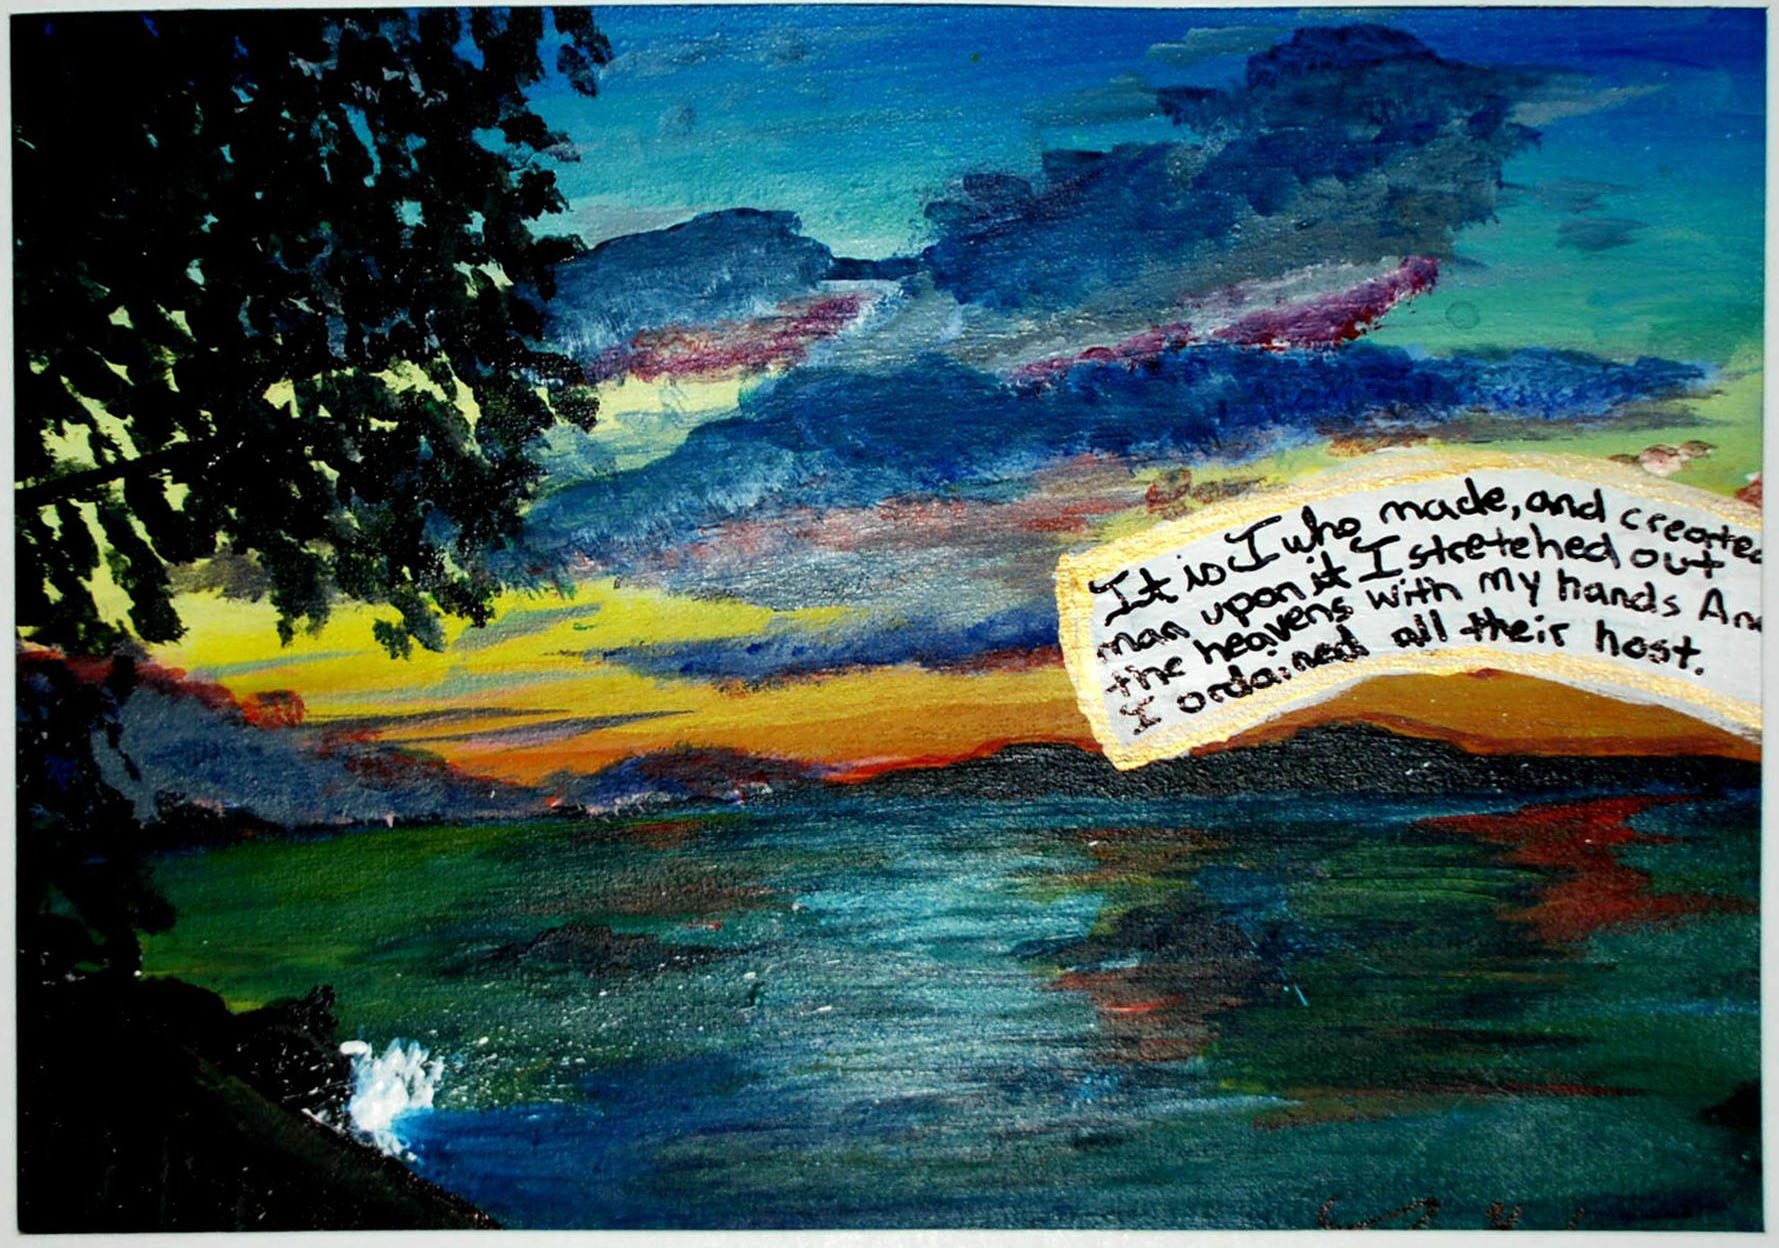 It is I who made, and created
man upon it I stretched out
the heavens with my hands And
I ordained all their host.